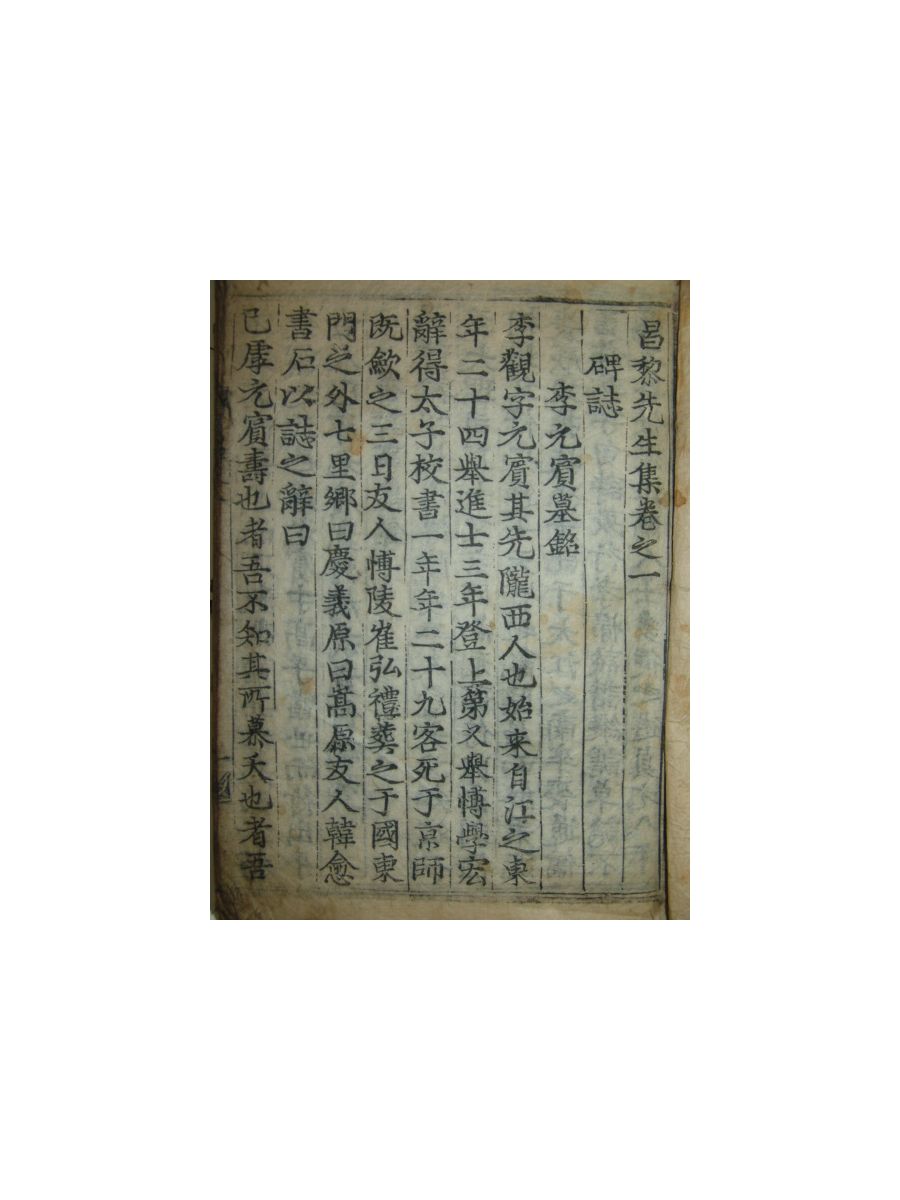 昌黎先生集卷之一
碑誌
李元賓墓銘
李觀字元賓其先隴西人也始來自江之東
年二十四舉進士三年登上第又舉愽學宏
辭得太子校書一年年二十九客死于京師
旣歛之三日友人愽陵崔弘禮葬之于國東
門之外七里鄉曰慶義原曰嵩原友人韓愈
書石以誌之辭曰
已虖元賓壽也者吾不知其所慕夭也者吾